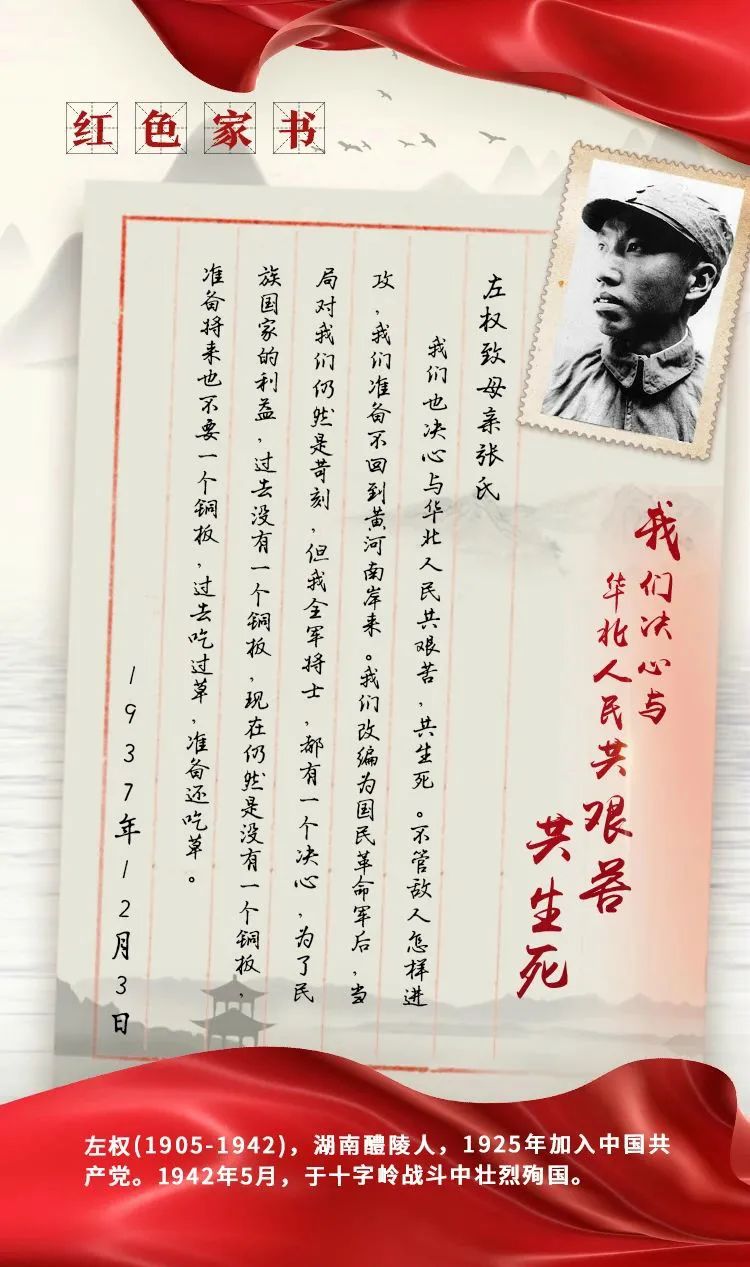 红色家书
左权致母亲张氏
我们也决心与华北人民共艰苦，共生死。不管敌人怎样进
攻，我们准备不回到黄河南岸来。我们改编为国民革命军后，当
局对我们仍然是苛刻，但我全军将士，都有一个决心，为了民
族国家的利益，过去没有一个铜板，现在仍然是没有一个铜板，
准备将来也不要一个铜板，过去吃过草，准备还吃草。
1937年12月3日
我们决心与
华北人民共艰苦
共生死
左权(1905-1942)，湖南醴陵人，1925年加入中国共
产党。1942年5月，于十字岭战斗中壮烈殉国。